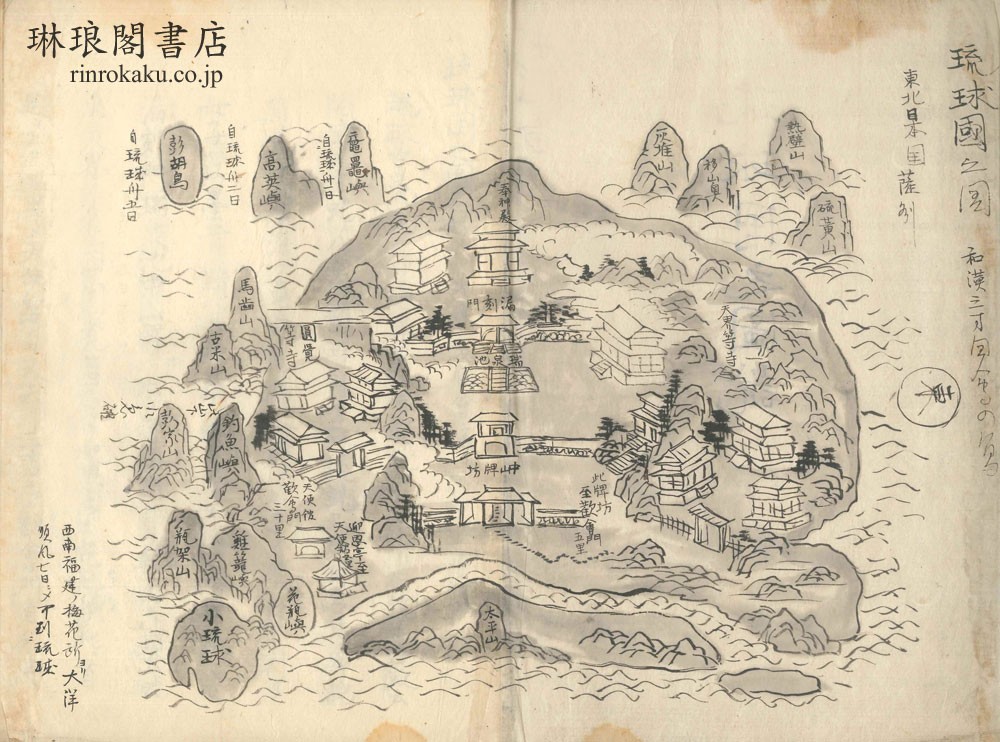 琉球國之圖
東北日本国薩州
熱壁山
硫黄山
移山奥
灰堆山
奉神殿
漏刻門
瑞泉池
天界等寺
中山牌坊
此牌坊
至歓會門
五里
圓覺
等寺
黿鼊嶼
自琉球舟一日
高英嶼
自琉球舟二日
彭胡島
自琉球舟五日
馬歯山
古米山
釣魚嶼
彭家山
瓶架山
雞籠嶼
花瓶嶼
小琉球
太平山
天使舘
歓會門
三十里
迎恩亭至
西南福建ノ梅花所ヨリ大洋
順風七日ニメ可到琉球
琳琅閣書店
rinrokaku.co.jp